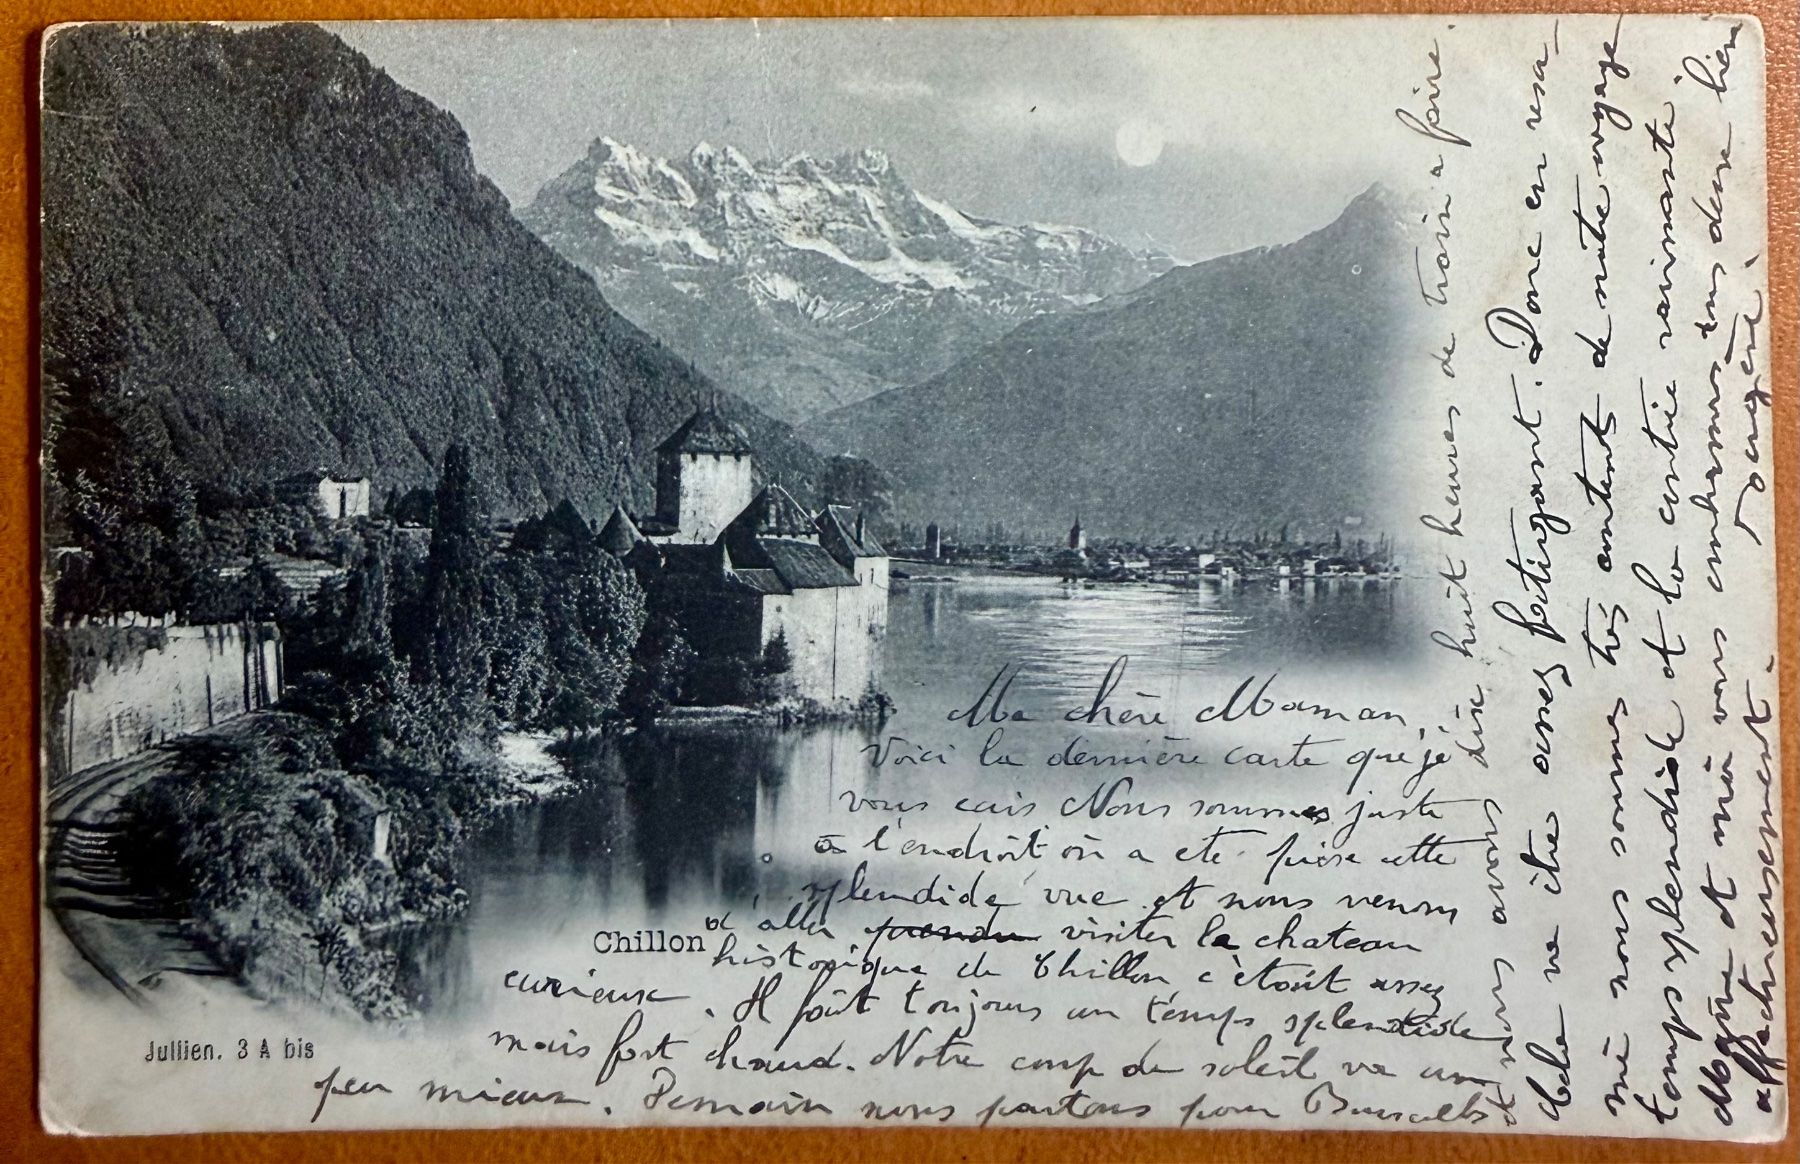 Ma chère Maman,
Voici la dernière carte que je
vous ecris Nous sommes juste
à l'endroit où a été prise cette
splendide vue et nous venons
d'aller visiter le chateau
historique de Chillon, c'était assez
curieux. Il fait toujours un temps splendide
mais fort chaud. Notre coup de soleil va un
peu mieux. Demain nous partons pour Bruxelles
et nous avons dix huit heures de train a faire.
Cela va être assez fatigant. Donc en resu-
mé nous sommes très contents de notre voyage
temps splendide et la contrée ravissante
et moi vous embrassons tous deux bien
affectueusement.
Chillon
Jullien. 3 A bis